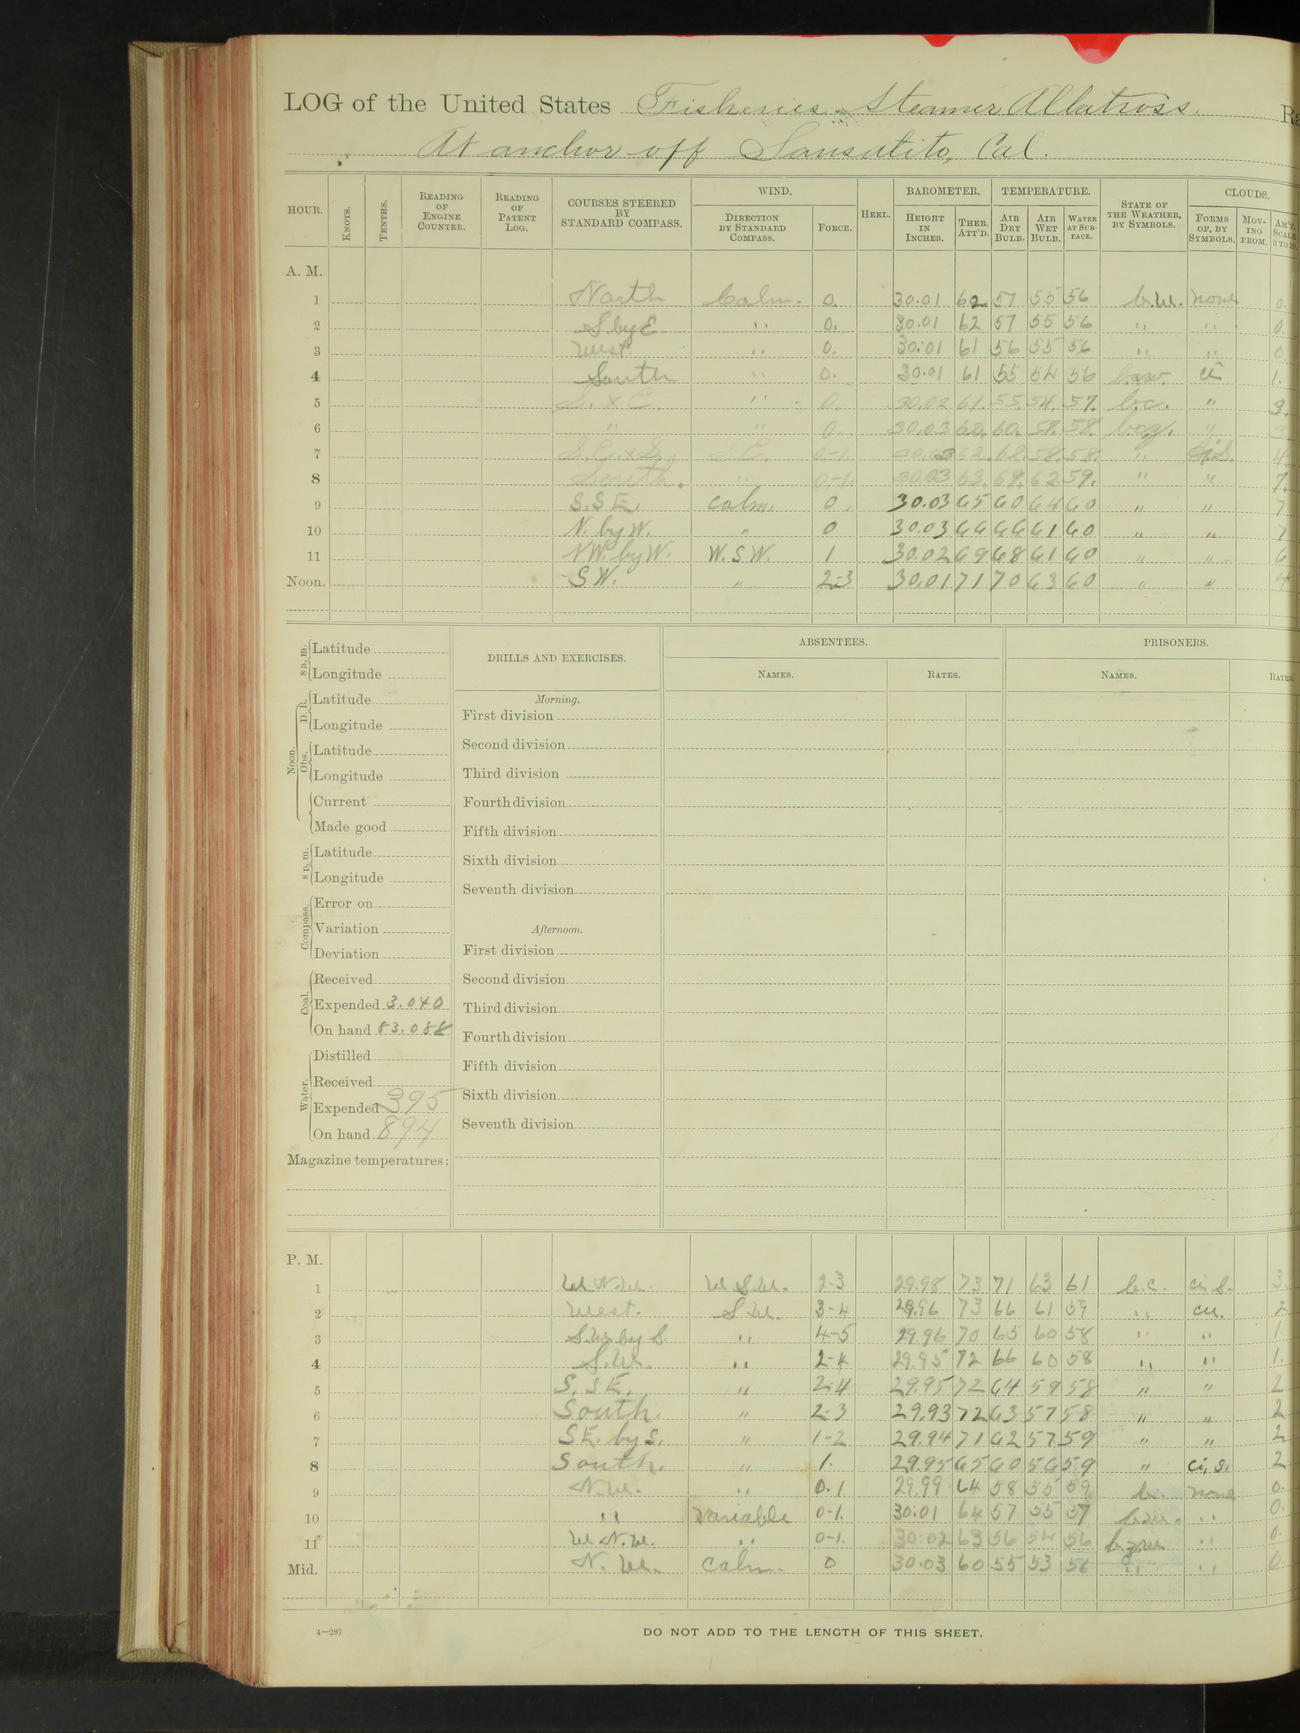 LOG of the United States Fisheries Steamer Albatross, Ra
At anchor off Sausalito, Cal.
HOUR. KNOTS. TENTHS. READING OF ENGINE COUNTER. READING OF PATENT LOG. COURSES STEERED BY STANDARD COMPASS. WIND. DIRECTION BY STANDARD COMPASS. FORCE. HEEL. BAROMETER. HEIGHT IN INCHES. THER. ATT'D. TEMPERATURE. AIR DRY BULB. AIR WET BULB. WATER AT SURFACE. STATE OF THE WEATHER, BY SYMBOLS. CLOUDS. FORMS OF, BY SYMBOLS. MOVING FROM. AM'T, SCALE 0 TO 10.
A. M.
1 North Calm. 0. 30.01 62 57 55 56 b.w. none 0.
2 S by E " 0. 30.01 62 57 55 56 " " 0.
3 West " 0. 30.01 61 56 55 56 " " 0
4 South " 0. 30.01 61 55 54 56 ci 1.
5 S. x E. " 0. 30.02 61. 55. 54. 57. b.c. " 3.
6 " " 0. 30.03 62. 60. 58. 58. bcz. " 3
7 S.E. x S. S.E. 0-1. 62. 62. 58. 58. " 4.
8 South. " 0-1. 30.03 63. 69. 62 59. " " 7.
9 S.S E. calm. 0. 30.03 65 60 64 60 " " 7
10 N. by W. " 0 30.03 66 66 61 60 " " 7
11 NW. by W. W.S.W. 1 30.02 69 68 61 60 " " 6
Noon. SW. " 2-3 30.01 71 70 63 60 " " 4
8 a. m. Latitude
Longitude
Noon. D. R. Latitude
Longitude
Obs. Latitude
Longitude
Current
Made good
8 p. m. Latitude
Longitude
Compass. Error on
Variation
Deviation
Coal. Received
Expended 3.040
On hand 83.088
Water. Distilled
Received
Expended 395
On hand 894
Magazine temperatures:
DRILLS AND EXERCISES.
Morning.
First division
Second division
Third division
Fourth division
Fifth division
Sixth division
Seventh division
Afternoon.
First division
Second division
Third division
Fourth division
Fifth division
Sixth division
Seventh division
ABSENTEES.
NAMES. RATES.
PRISONERS.
NAMES. RATES.
P. M.
1 W N.W. W S.W. 2-3 29.98 73 71 63 61 b.c. ci s. 3
2 West. S.W. 3-4 29.96 73 66 61 59 " cu. 2
3 S.W. by S. " 4-5 29.96 70 65 60 58 " " 1
4 S.W. " 2-4 29.95 72 66 60 58 " " 1.
5 S. S E. " 2-4 29.95 72 64 59 58 " " 2
6 South. " 2-3 29.93 72 63 57 58 " " 2
7 SE. by S. " 1-2 29.94 71 62 57 59 " " 2
8 South. " 1. 29.95 65 60 56 59 " ci. s. 2
9 N.W. " 0.1 29.99 64 58 55 59 b. none 0.
10 " Variable 0-1. 30.01 64 57 55 57 " 0.
11 W N.W. " 0-1. 30.02 63 56 54 56 bzw " 0.
Mid. N. W. Calm. 0 30.03 60 55 53 56 " " 0
4—287
DO NOT ADD TO THE LENGTH OF THIS SHEET.